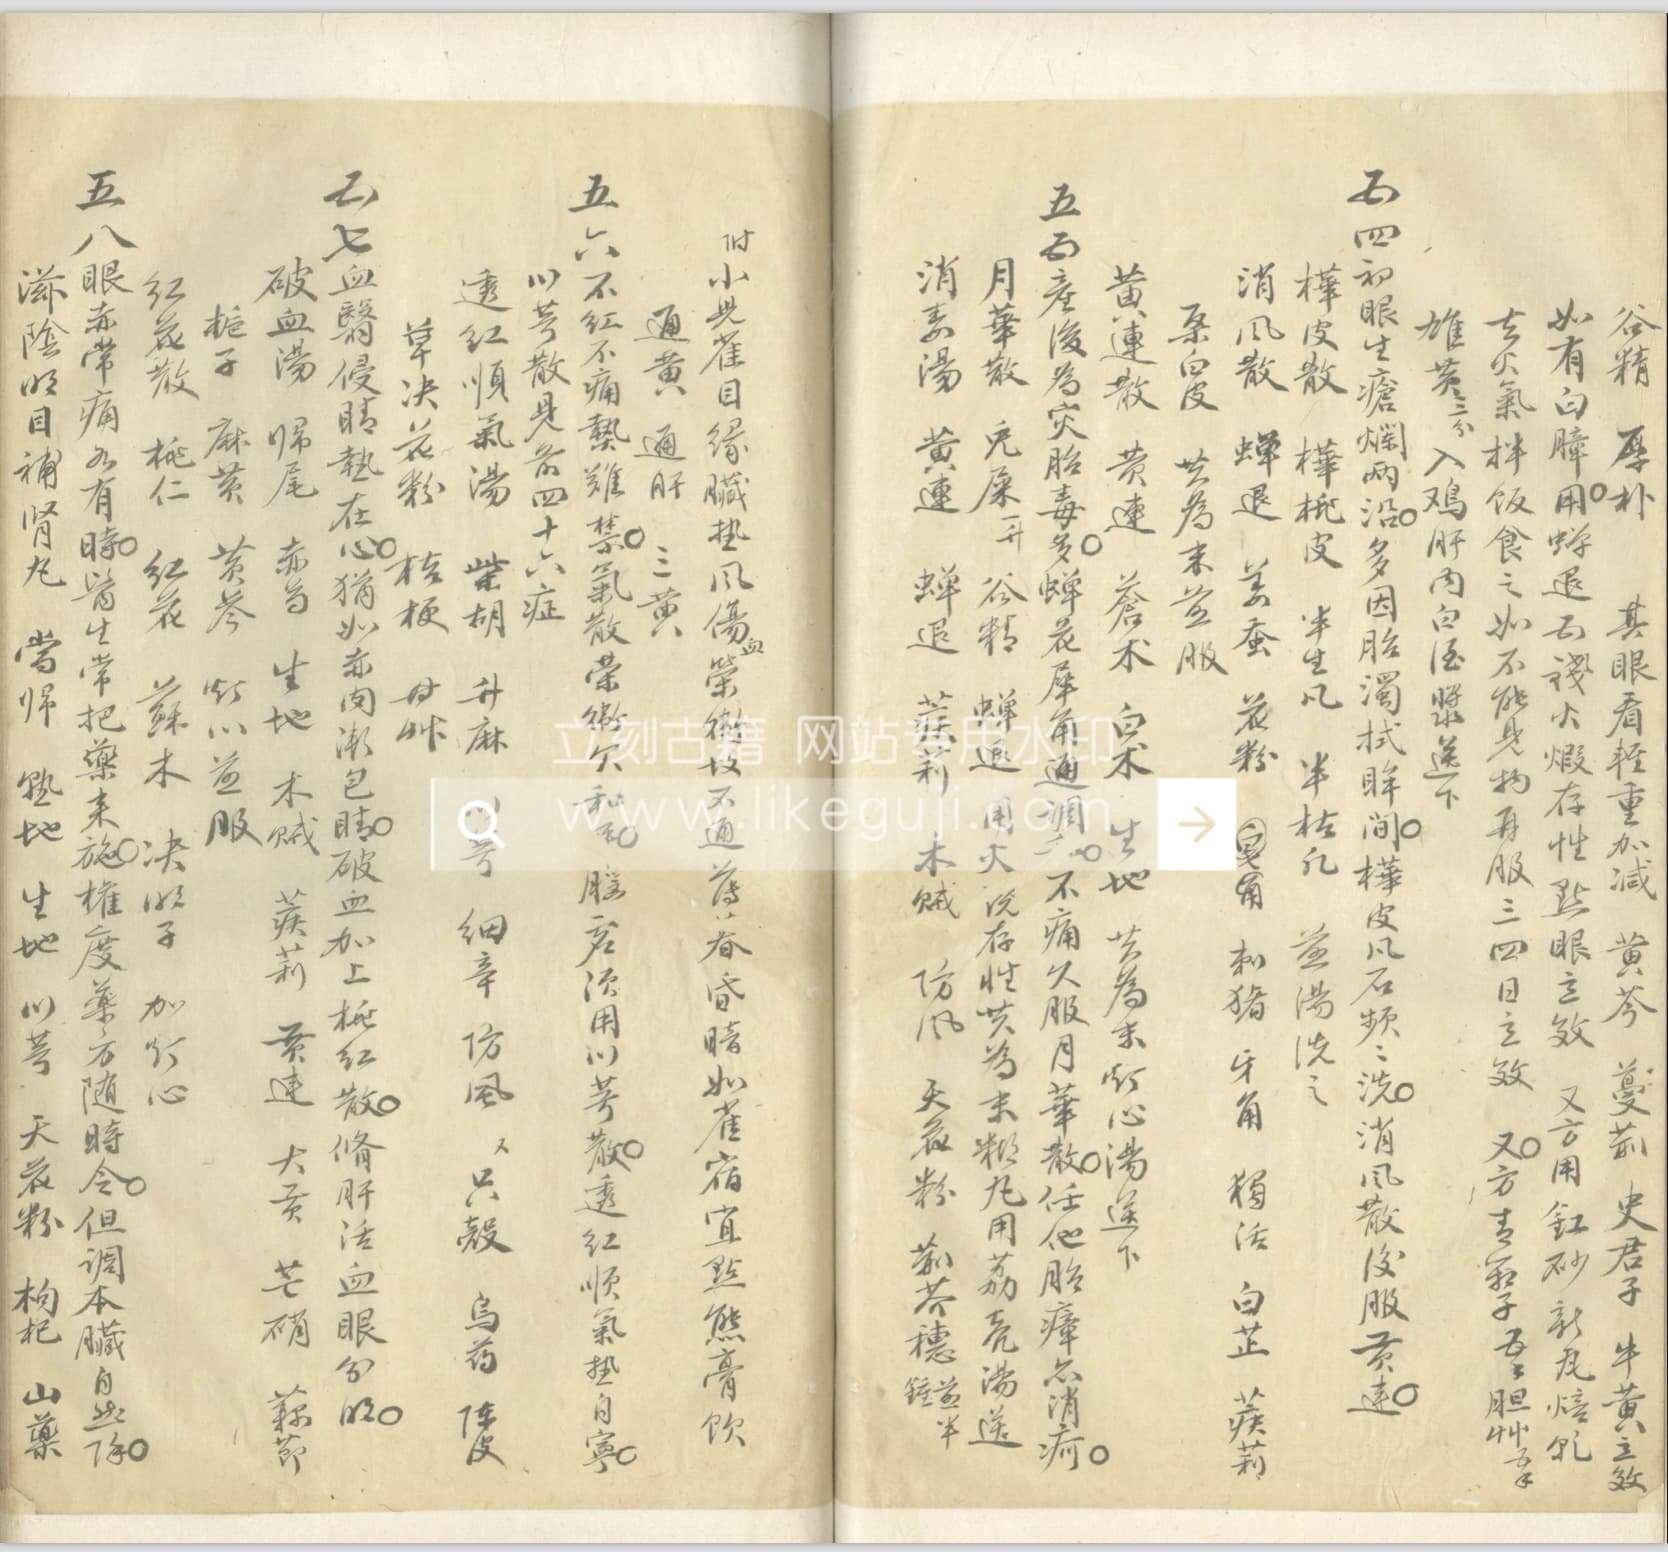 谷精 厚朴 其眼看輕重加減 黄芩 蔓荊 史君子 牛黄立效
如有白瞕用蟬退五錢火煅存性點眼立效 又方用釭砂新瓦焙乾
去火氣拌飯食之如不能見物再服三四日立效 又方青葙子五分胆艸五分
雄黄三分入鸡肝内白酒漿送下
五四初眼生瘡爛两沿多因胎濁拭眸间樺皮風石頻〻洗消风散後服黄連
樺皮散 樺桃皮 半生凡 半枯凡 並湯洗之
消风散 蟬退 姜蚕 花粉 皂角 刺猪 牙角 獨活 白芷 蒺莉
桑白皮 共為末並服
黄連散 黄連 蒼术 白术 生地 共為末灯心湯送下
五五産後為灾胎毒多蟬花犀角通調不痛久服月華散任他胎瘴亦消疴
月華散 兎屎一升 谷精 蟬退 用火 存性共為末糊丸用荔壳湯送
消毒湯 黄連 蟬退 蒺莉 木贼 防风 天花粉 荊芥穗 並半
附小兒雀目缘臟热风傷血榮衛故不通 昏暗如雀宿宜點熊膏飲
通黄 通肝 三黄
五六不红不痛熱難禁氣散荣衛欠和 腦 須用川芎散透红顺氣热自寧
川芎散見前四十六症
透红順氣湯 柴胡 升麻 川芎 細辛 防風 又只殼 烏药 陳皮
草决 花粉 桔梗 甘艸
五七血翳侵睛热在心猶如赤肉漸包睛破血加上桃红散脩肝活血眼分明
破血湯 帰尾 赤芍 生地 木贼 蒺莉 黄連 大黄 芒硝 蘇節
梔子 麻黄 黄芩 灯心並服
红花散 桃仁 红花 蘇木 决明子 加灯心
五八眼赤常痛各有時皆生常把藥来施權度藥方随時令但調本臟自然除
滋陰明目補肾丸 當帰 熟地 生地 川芎 天花粉 枸杞 山藥
立刻古籍 网站专用水印
www.likeguji.com